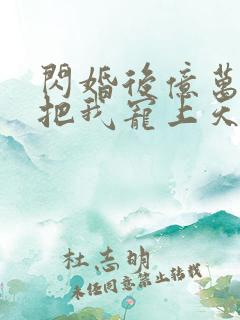 閃婚後億萬
把我寵上天
杜志明
未經同意禁止轉載